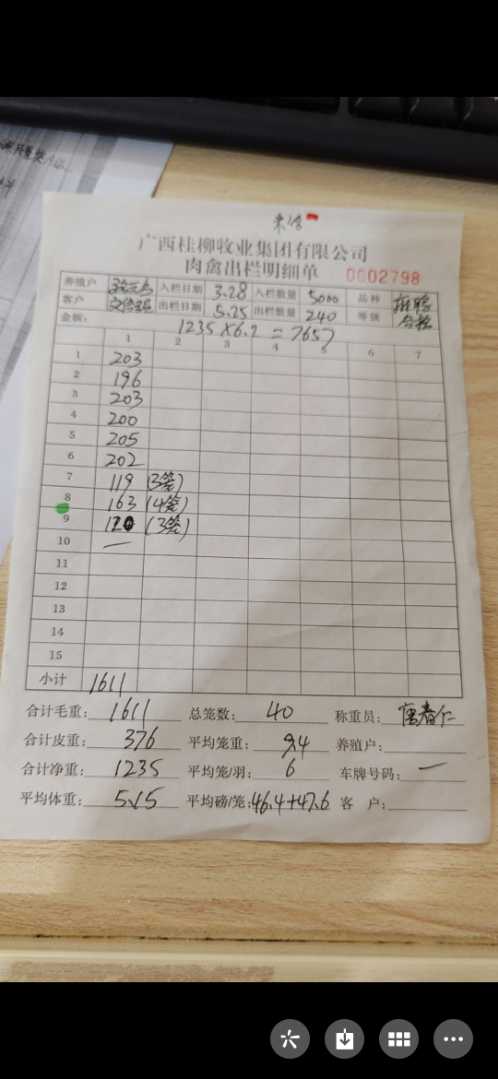 广西桂柳牧业集团有限公司
肉禽出栏明细单 0002798
养殖户 入栏日期 3.28 入栏数量 5000 品种
客户 出栏日期 5.25 出栏数量 240 等级 合格
金额: 1235×6.2=7657
1 2 3 4 5 6 7
1 203
2 196
3 203
4 200
5 205
6 202
7 119 (3笼)
8 163 (4笼)
9 120 (3笼)
10 —
11
12
13
14
15
小计 1611
合计毛重: 1611 总笼数: 40 称重员:
合计皮重: 376 平均笼重: 9.4 养殖户:
合计净重: 1235 平均笼/羽: 6 车牌号码: —
平均体重: 5.15 平均磅/笼: 46.4+47.6 客 户: